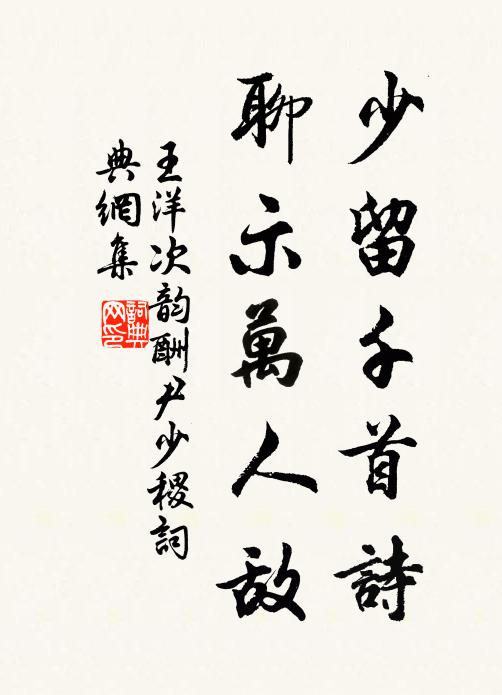 少留千首詩
聊示萬人敌
王洋次韵酬尹少稷詞
典網集
詞典
网印